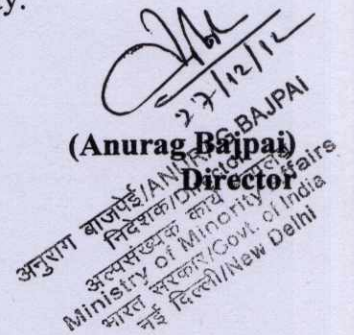 y.
27/12/12
(Anurag Bajpai)
Director
अनुराग बाजपेई/ANURAG BAJPAI
निदेशक/Director
अल्पसंख्यक कार्य मंत्रालय
Ministry of Minority Affairs
भारत सरकार/Govt. of India
नई दिल्ली/New Delhi